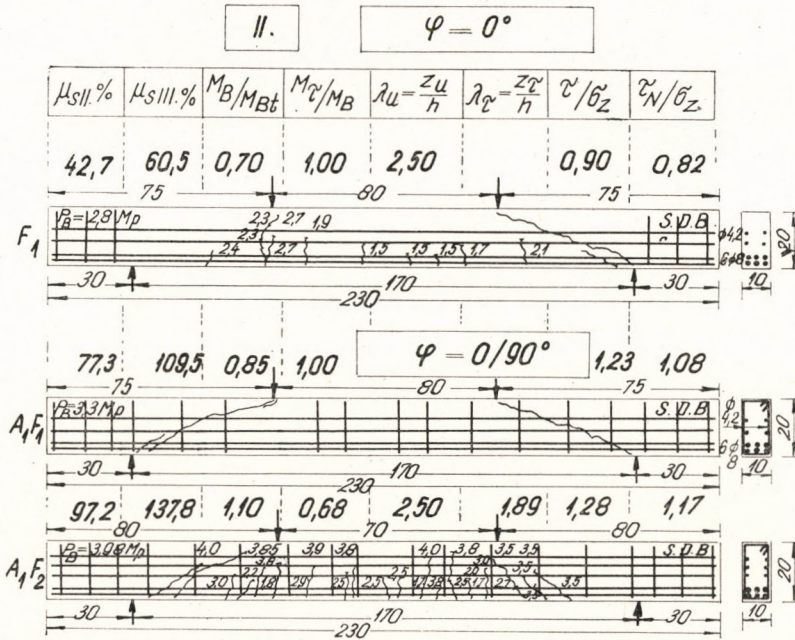 II. φ = 0°
μSII.% μSIII.% MB/MBt Mτ/MB λu=zu/h λτ=zτ/h τ/σz τN/σz
42,7 60,5 0,70 1,00 2,50 0,90 0,82
75 80 75
F1
PB=2,8 Mp 2,3 2,7 1,9 S.D.B
2,3
2,4 2,7 1,5 1,5 1,5 1,7 2,1
ϕ4,2
6ϕ8
20
30 170 30 10
230
φ = 0/90°
77,3 109,5 0,85 1,00 1,23 1,08
75 80 75
A1F1
PB=3,3 Mp S.D.B
ϕ
4,2
6ϕ
8
20
30 170 30 10
230
97,2 137,8 1,10 0,68 2,50 1,89 1,28 1,17
80 70 80
A1F2
PB=3,98 Mp 4,0 3,85 3,9 3,8 4,0 3,8 3,5 3,5 S.D.B
3,0 1,8 2,9 2,5 2,5 2,5 3,8 2,5 1,7 3,5
20
30 170 30 10
230